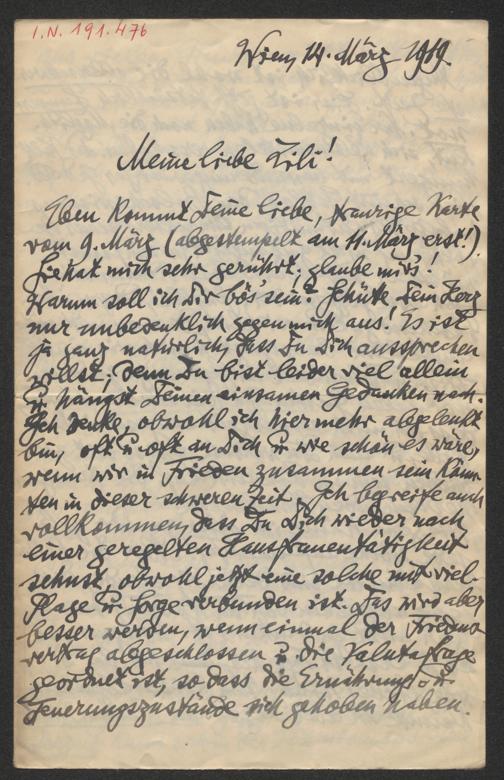 I.N. 191.476
Wien, 14. März 1919.
Meine liebe Lili!
Eben kommt Deine liebe, traurige Karte
vom 9. März (abgestempelt am 11. März erst!)
Sie hat mich sehr gerührt, glaube mir's!
Warum soll ich Dir bös' sein? Schütte Dein Herz
nur unbedenklich gegen mich aus! Es ist
ja ganz natürlich, dass Du Dich aussprechen
willst; denn Du bist leider viel allein
u. hängst Deinen einsamen Gedanken nach.
Ich denke, obwohl ich hier mehr abgelenkt
bin, oft u. oft an Dich u. wie schön es wäre,
wenn wir in Frieden zusammen sein könn-
ten in dieser schweren Zeit. Ich begreife auch
vollkommen, dass Du Dich wieder nach
einer geregelten Hausfrauentätigkeit
sehnst, obwohl jetzt eine solche mit viel
Plage u. Sorge verbunden ist. Das wird aber
besser werden, wenn einmal der Friedens-
vertrag abgeschlossen u. die Valutafrage
geordnet ist, so dass die Ernährungs- u.
Teuerungszustände sich gehoben haben.